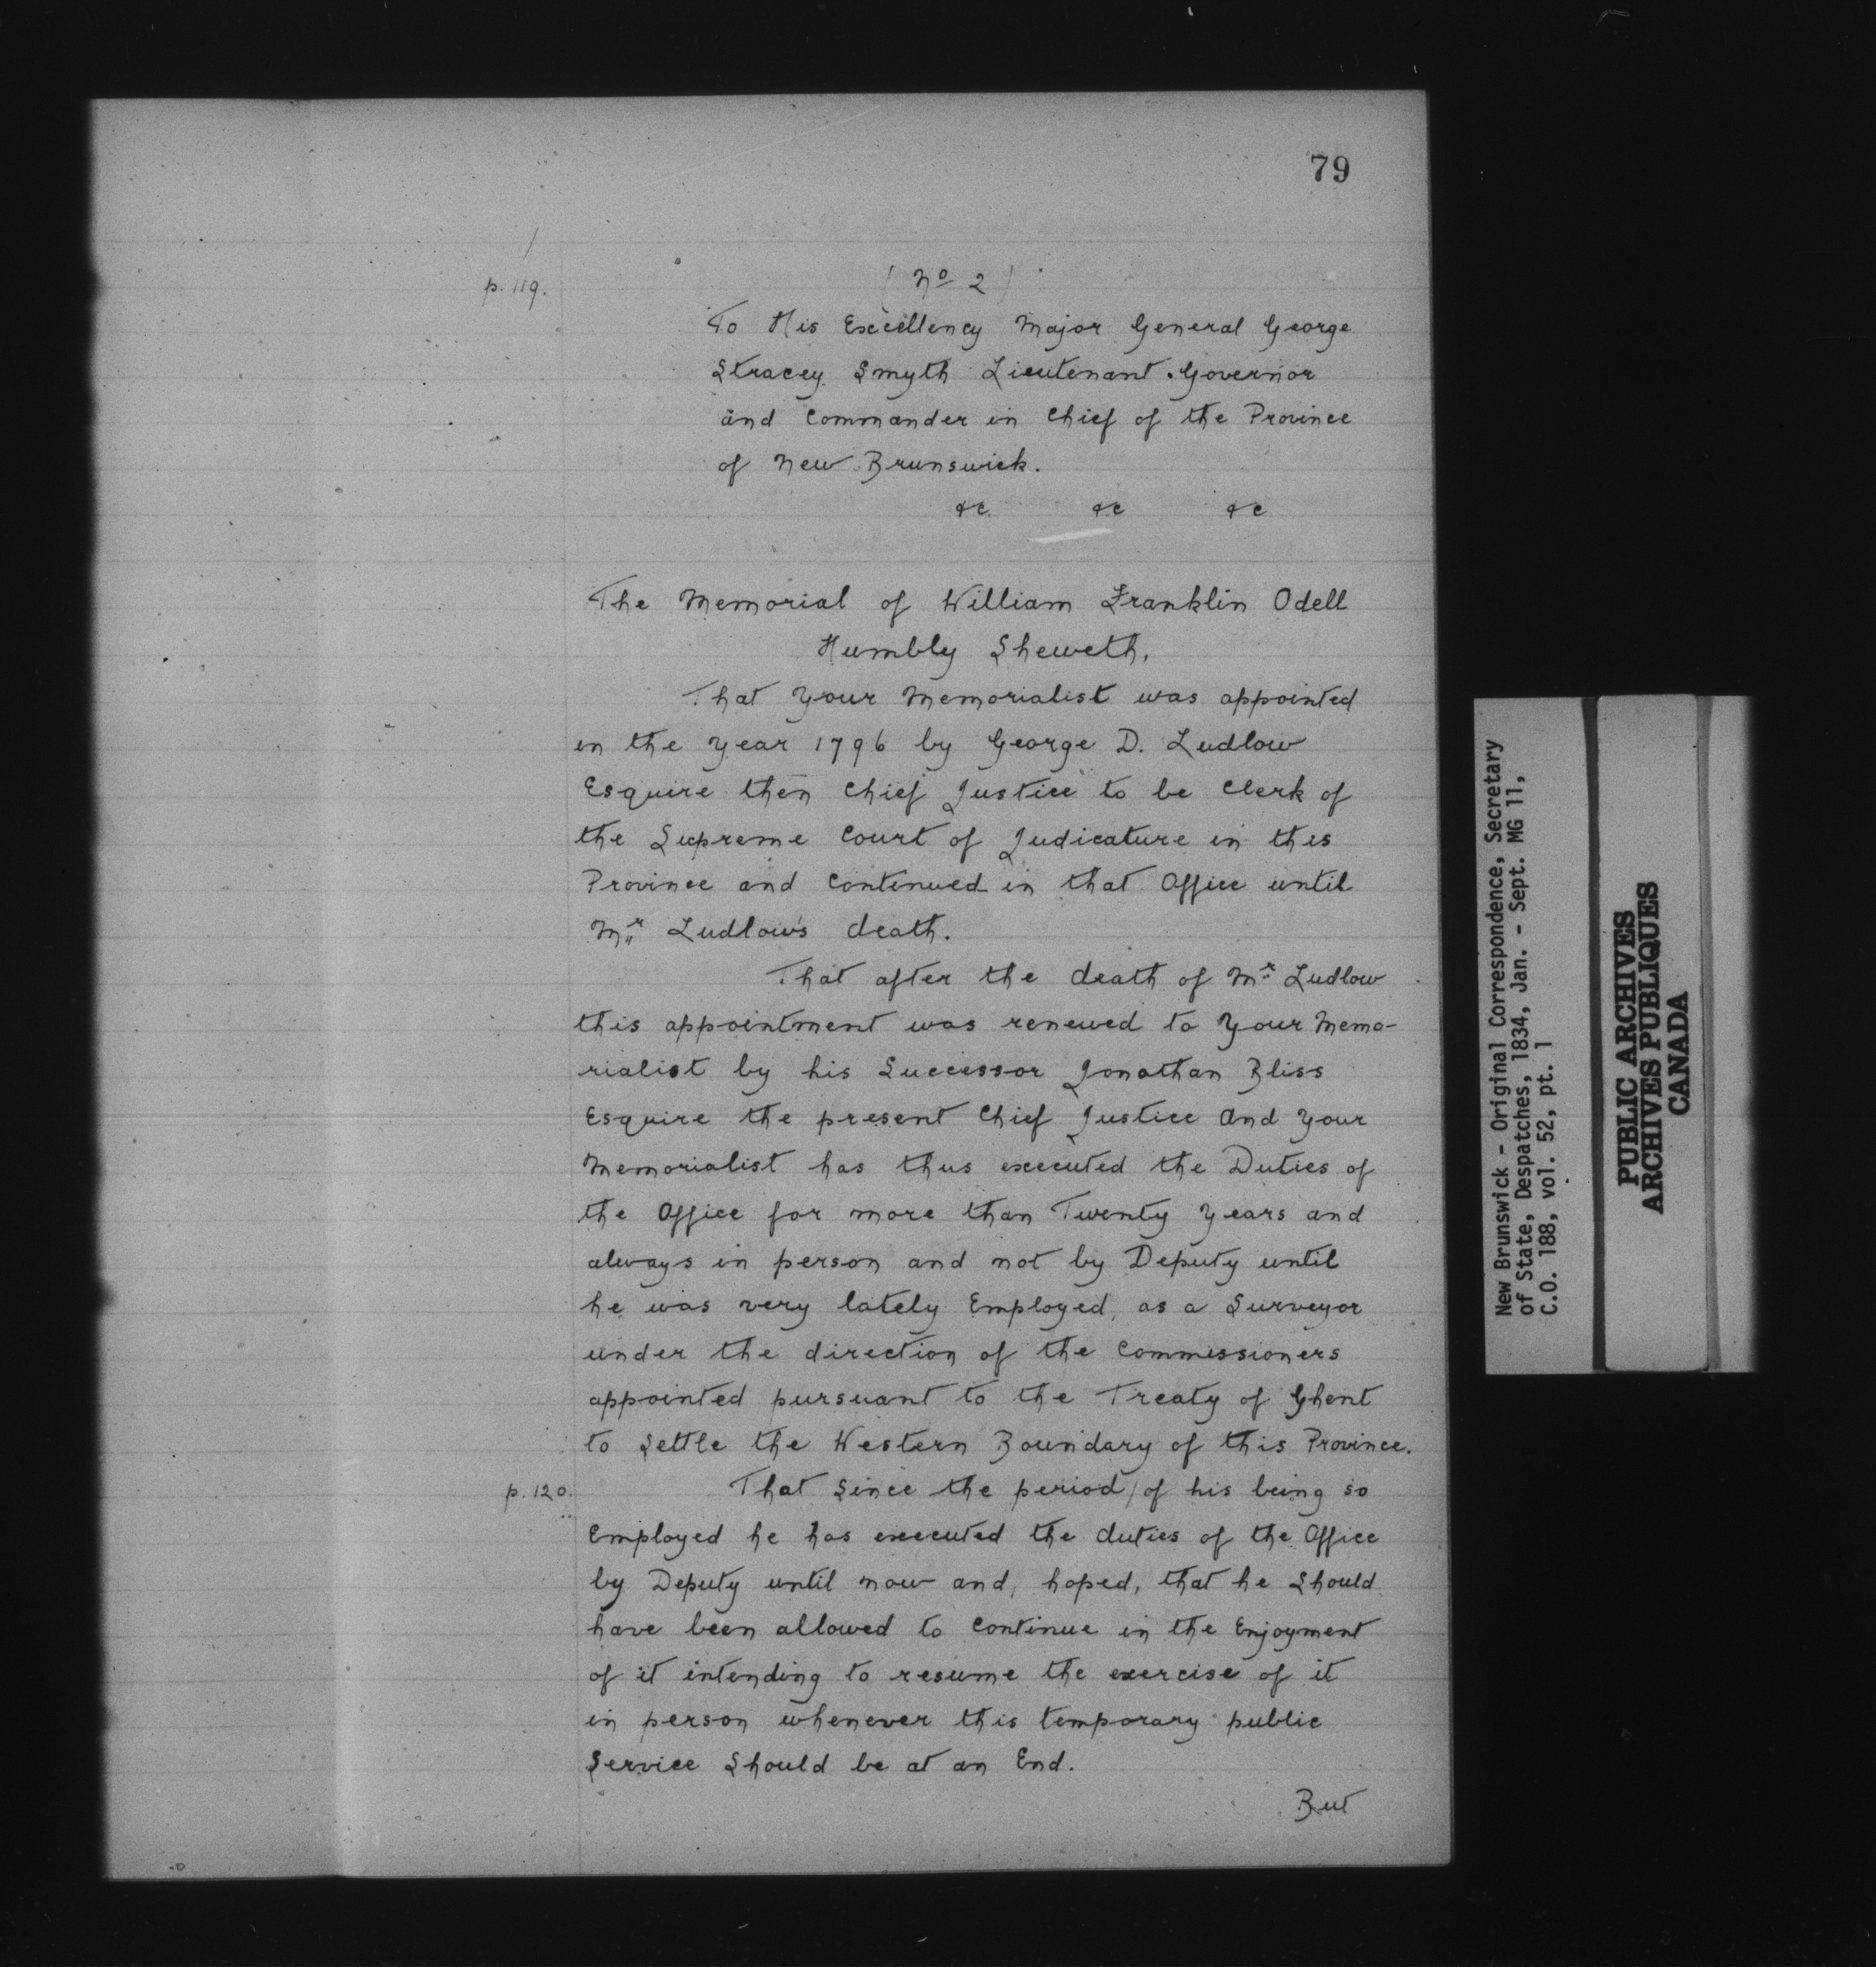 79
p. 119.
(No 2)
To His Excellency Major General George
Stracey Smyth Lieutenant Governor
and Commander in Chief of the Province
of New Brunswick.
&c &c &c
The Memorial of William Franklin Odell
Humbly Sheweth,
That Your Memorialist was appointed
in the Year 1796 by George D. Ludlow
Esquire then Chief Justice to be Clerk of
the Supreme Court of Judicature in this
Province and Continued in that Office until
Mr Ludlow's death.
That after the death of Mr Ludlow
this appointment was renewed to Your Memo-
rialist by his Successor Jonathan Bliss
Esquire the present Chief Justice and Your
Memorialist has thus executed the Duties of
the Office for more than Twenty Years and
always in person and not by Deputy until
he was very lately Employed, as a Surveyor
under the direction of the Commissioners
appointed pursuant to the Treaty of Ghent
to Settle the Western Boundary of this Province.
p. 120.
That Since the period / of his being so
Employed he has executed the duties of the Office
by Deputy until now and, hoped, that he Should
have been allowed to Continue in the Enjoyment
of it intending to resume the exercise of it
in person whenever this temporary public
Service Should be at an End.
But
New Brunswick - Original Correspondence, Secretary
of State, Despatches, 1834, Jan. - Sept. MG 11,
C.O. 188, vol. 52, pt. 1
PUBLIC ARCHIVES
ARCHIVES PUBLIQUES
CANADA